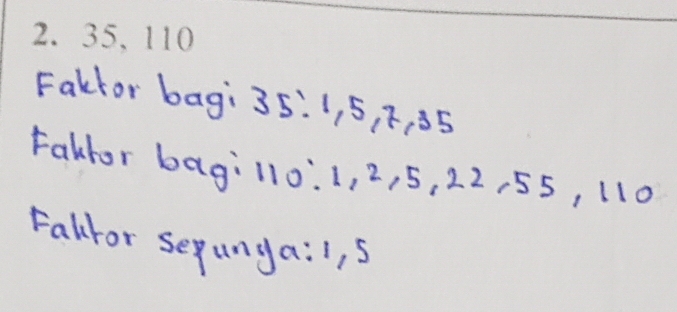 2. 35, 110
Faktor bagi 35: 1, 5, 7, 35
Faktor bagi 110: 1, 2, 5, 22, 55, 110
Faktor sepunya: 1, 5